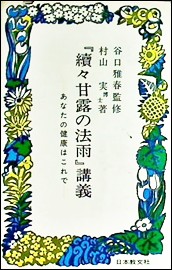 谷口雅春監修
村山実博士著
『續々甘露の法雨』講義
あなたの健康はこれで
日本教文社